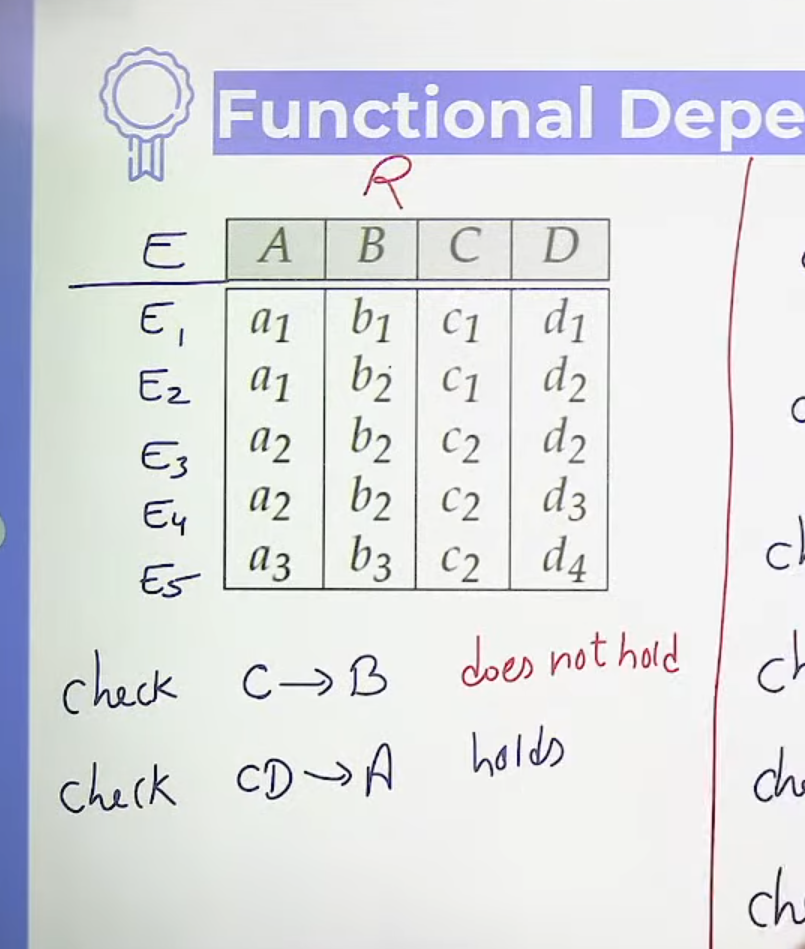 Functional Depe
R
E A B C D
E1 a1 b1 c1 d1
E2 a1 b2 c1 d2
E3 a2 b2 c2 d2
E4 a2 b2 c2 d3
E5 a3 b3 c2 d4
check C→B does not hold
check CD→A holds
ch
ch
che
che